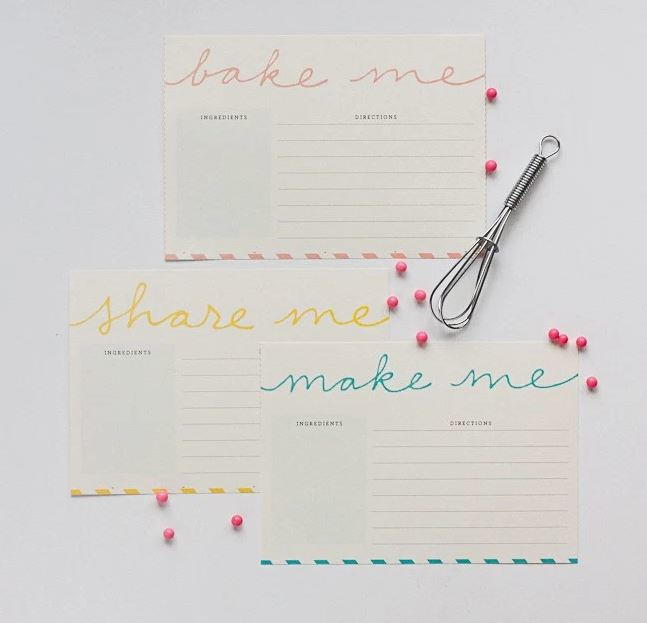 bake me
INGREDIENTS DIRECTIONS
share me
INGREDIENTS
make me
INGREDIENTS DIRECTIONS